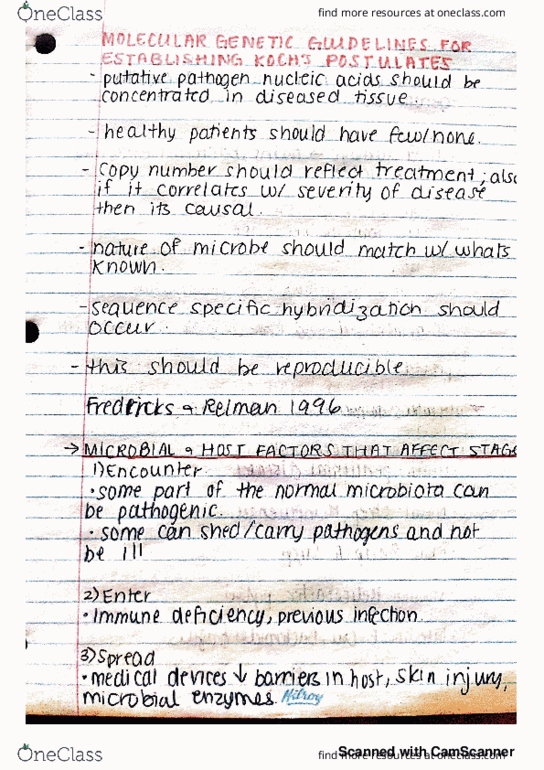 OneClass
find more resources at oneclass.com
MOLECULAR GENETIC GUIDELINES FOR
ESTABLISHING KOCHS POSTULATES
- putative pathogen nucleic acids should be
concentrated in diseased tissue
- healthy patients should have few/none.
- Copy number should reflect treatment; also
if it correlates w/ severity of disease
then its causal.
- nature of microbe should match w/ whats
known.
- sequence specific hybridization should
occur.
- this should be reproducible
Fredricks & Relman 1996
→ MICROBIAL & HOST FACTORS THAT AFFECT STAGE
1) Encounter
• some part of the normal microbiota can
be pathogenic.
• some can shed/carry pathogens and not
be ill
2) Enter
• Immune deficiency, previous infection
3) Spread
• medical devices ↓ barriers in host, skin injury,
microbial enzymes.
Hilroy
OneClass
find more resources at oneclass.com
Scanned with CamScanner